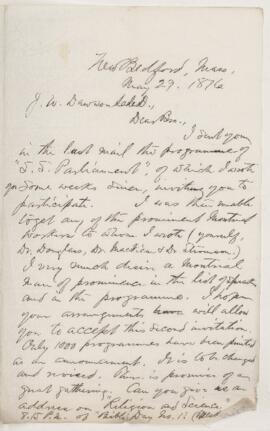 New Bedford, Mass.,
May 29. 1876
J. W. Dawson
Dear Bro.,
I sent you
in the last mail the programme of
"S. S. Parliament", of which I wrote
you some weeks since, inviting you to
participate. I was then unable
to get any of the prominent Montreal
to whom I wrote (yourself,
Dr. Douglas, Dr. & Dr.
I very much desire a Montreal
man of prominence in the list of speakers
and in the programme. I hope
your arrangements will allow
you to accept this second invitation.
Only 1000 programmes have been printed
as an announcement. It is to be changed
and revised. There is promise of a
great gathering. Can you give us an
address on "Religion and Science"
8.15 P.M. of Bible Day